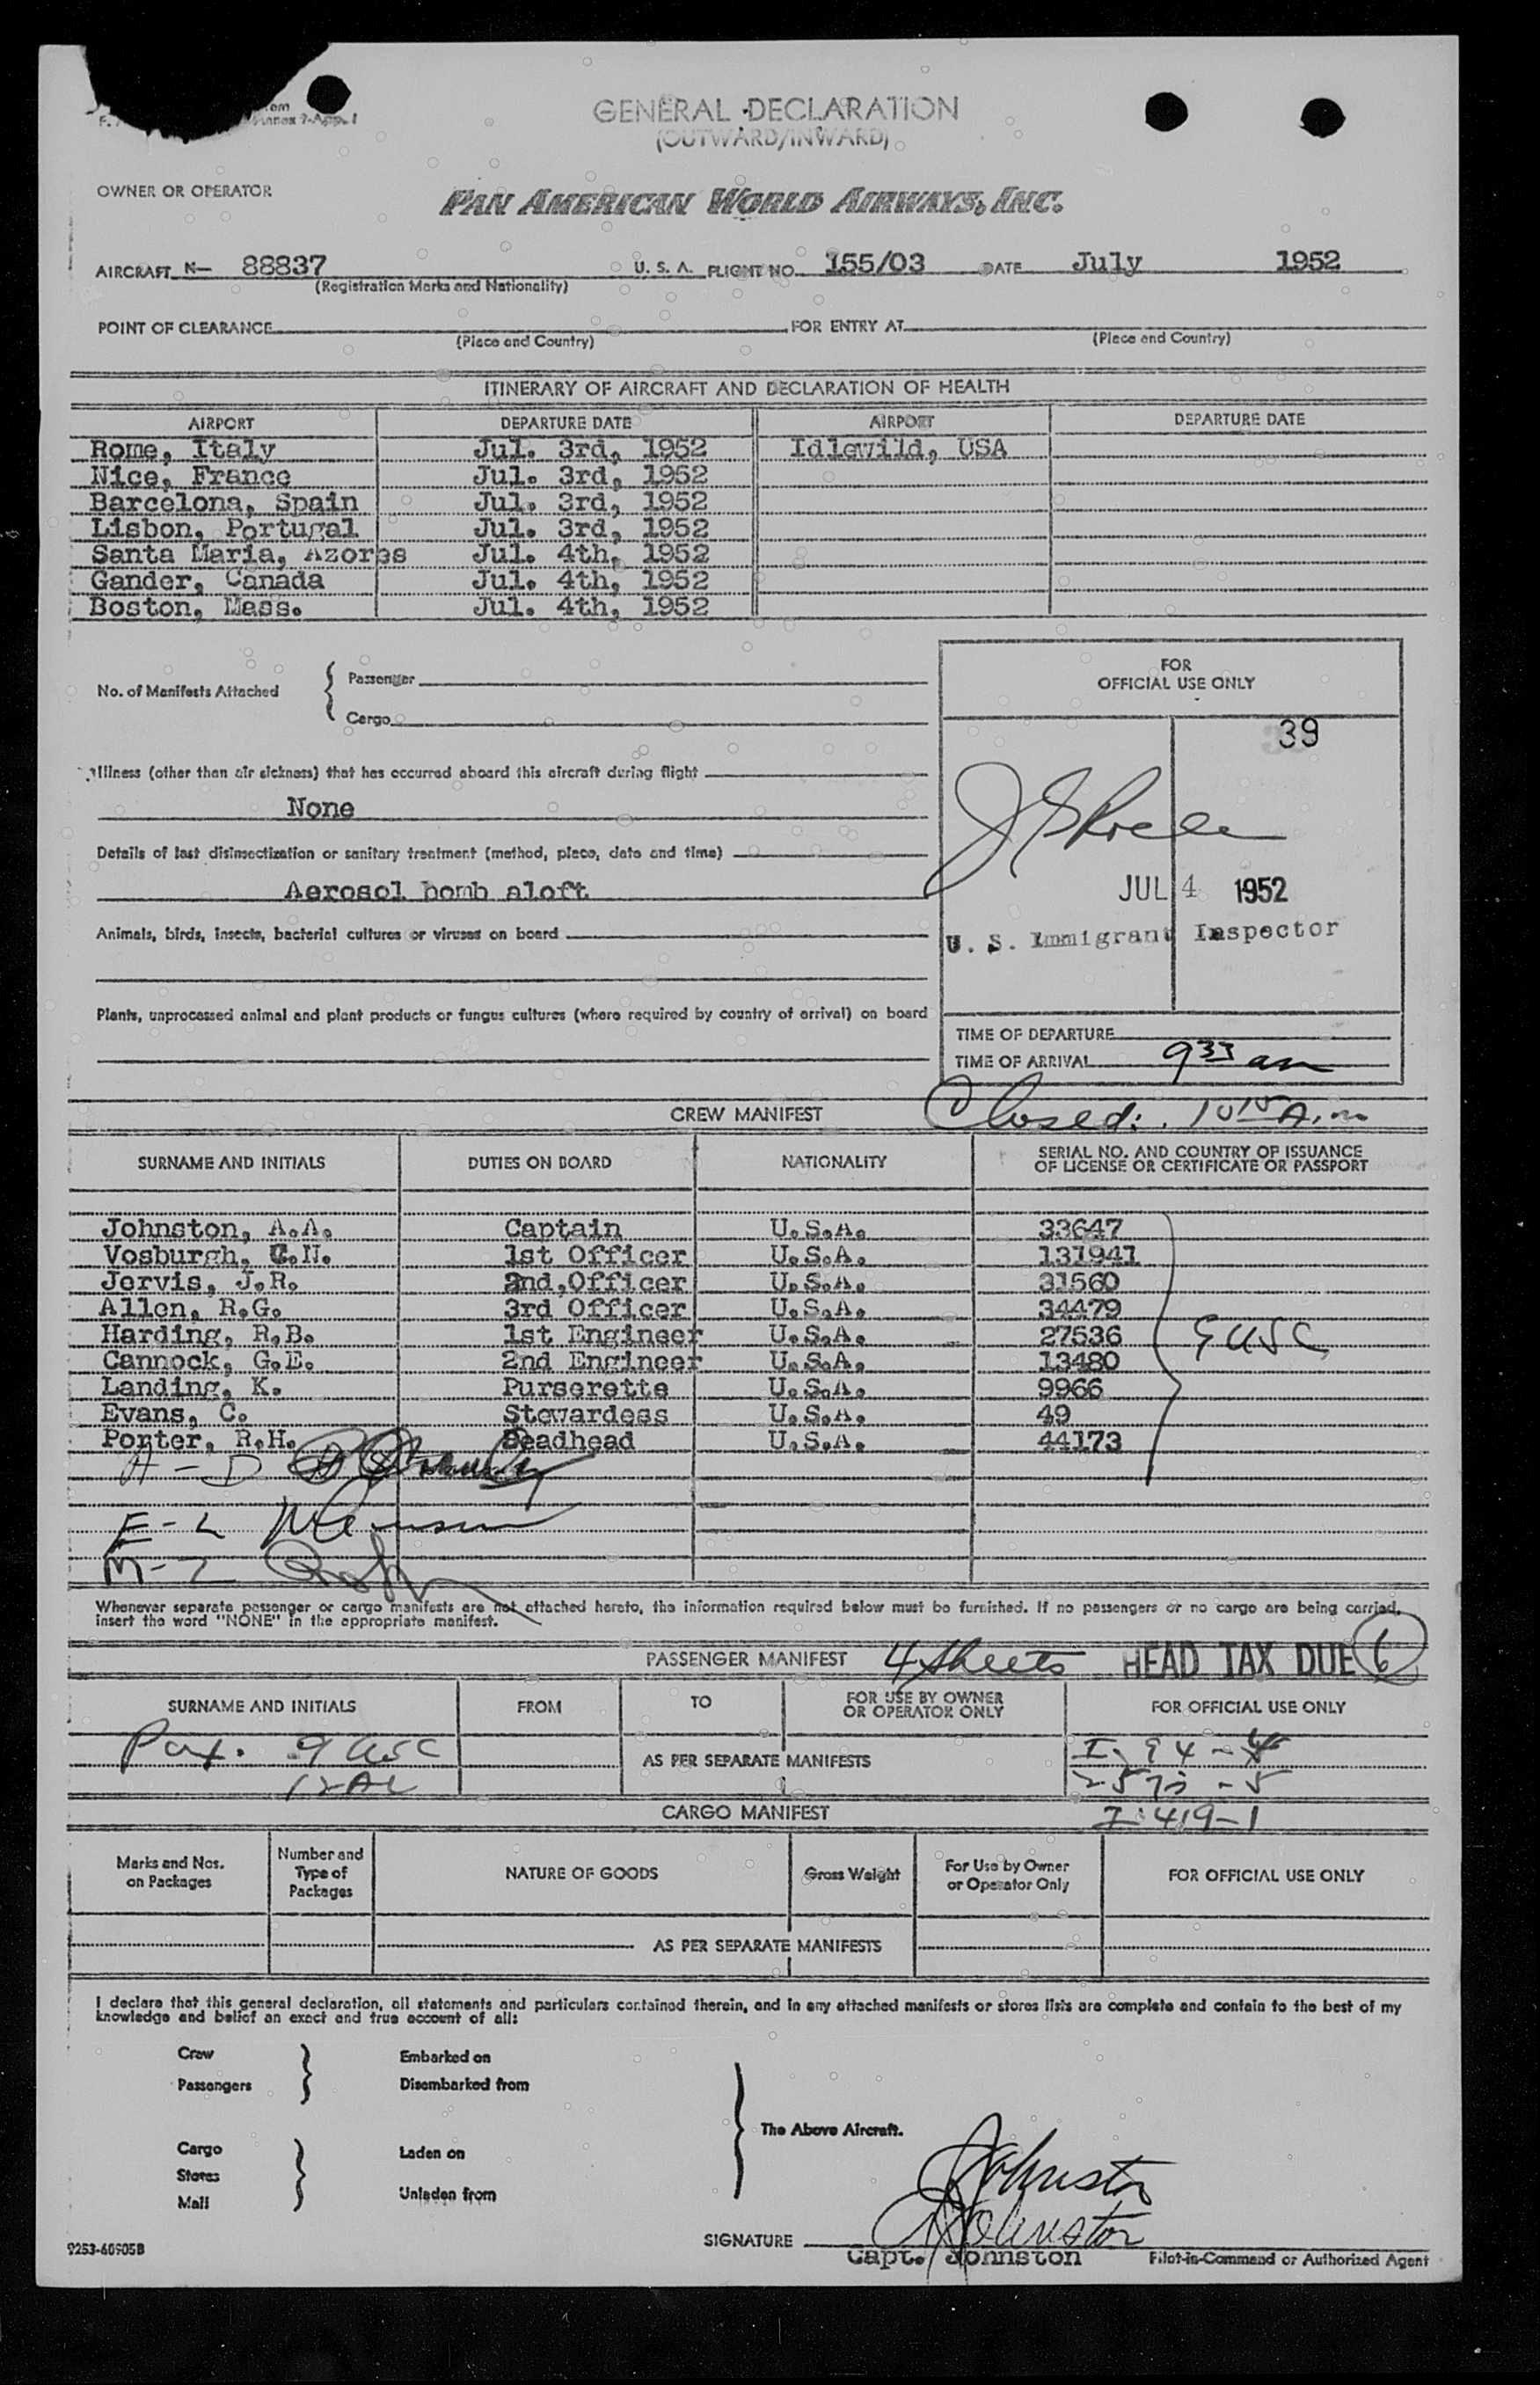 GENERAL DECLARATION
(OUTWARD/INWARD)
OWNER OR OPERATOR
PAN AMERICAN WORLD AIRWAYS, INC.
AIRCRAFT N— 88837 U. S. A. FLIGHT NO. 155/03 DATE July 1952
(Registration Marks and Nationality)
POINT OF CLEARANCE FOR ENTRY AT
(Place and Country) (Place and Country)
ITINERARY OF AIRCRAFT AND DECLARATION OF HEALTH
AIRPORT DEPARTURE DATE AIRPORT DEPARTURE DATE
Rome, Italy Jul. 3rd, 1952 Idlewild, USA
Nice, France Jul. 3rd, 1952
Barcelona, Spain Jul. 3rd, 1952
Lisbon, Portugal Jul. 3rd, 1952
Santa Maria, Azores Jul. 4th, 1952
Gander, Canada Jul. 4th, 1952
Boston, Mass. Jul. 4th, 1952
No. of Manifests Attached
Passenger
Cargo
Illness (other than air sickness) that has occurred aboard this aircraft during flight
None
Details of last disinsectization or sanitary treatment (method, place, date and time)
Aerosol bomb aloft
Animals, birds, insects, bacterial cultures or viruses on board
Plants, unprocessed animal and plant products or fungus cultures (where required by country of arrival) on board
FOR
OFFICIAL USE ONLY
39
JUL 4 1952
U. S. Immigrant Inspector
TIME OF DEPARTURE
TIME OF ARRIVAL 9 33 am
CREW MANIFEST Closed: 10 15 A.m
SURNAME AND INITIALS DUTIES ON BOARD NATIONALITY SERIAL NO. AND COUNTRY OF ISSUANCE
OF LICENSE OR CERTIFICATE OR PASSPORT
Johnston, A.A. Captain U.S.A. 33647
Vosburgh, C.N. 1st Officer U.S.A. 131941
Jervis, J.R. 2nd,Officer U.S.A. 31560
Allen, R.G. 3rd Officer U.S.A. 34479
Harding, R.B. 1st Engineer U.S.A. 27536
Cannock, G.E. 2nd Engineer U.S.A. 13480
Landing, K. Purserette U.S.A. 9966
Evans, C. Stewardess U.S.A. 49
Porter, R.H. Deadhead U.S.A. 44173
9 USC
A - D
E - L
M - Z
Whenever separate passenger or cargo manifests are not attached hereto, the information required below must be furnished. If no passengers or no cargo are being carried,
insert the word "NONE" in the appropriate manifest.
PASSENGER MANIFEST 4 sheets HEAD TAX DUE 6
SURNAME AND INITIALS FROM TO FOR USE BY OWNER
OR OPERATOR ONLY FOR OFFICIAL USE ONLY
Pax. 9 USC
AS PER SEPARATE MANIFESTS
I-94-
12 AL
CARGO MANIFEST I-419-1
Marks and Nos.
on Packages
Number and
Type of
Packages
NATURE OF GOODS
Gross Weight
For Use by Owner
or Operator Only
FOR OFFICIAL USE ONLY
AS PER SEPARATE MANIFESTS
I declare that this general declaration, all statements and particulars contained therein, and in any attached manifests or stores lists are complete and contain to the best of my
knowledge and belief an exact and true account of all:
Crew Embarked on
Passengers Disembarked from
The Above Aircraft.
Cargo Laden on
Stores
Mail Unladen from
Johnston
SIGNATURE Johnston
Capt. Johnston Pilot-in-Command or Authorized Agent
9253-60905B